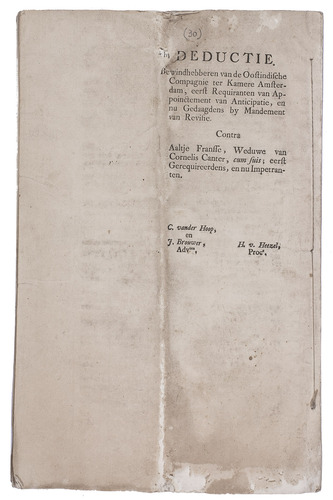 (30)
In DEDUCTIE.
Bewindhebberen van de Oostindische
Compagnie ter Kamere Amster-
dam, eerst Requiranten van Ap-
poinctement van Anticipatie, en
nu Gedaagdens by Mandement
van Revisie.
Contra
Aaltje Fransse, Weduwe van
Cornelis Canter, cum suis; eerst
Gerequireerdens, en nu Impetran-
ten.
C. vander Hoop,
en
J. Brouwer,
Adv.en,
H. v. Heezel,
Procr.